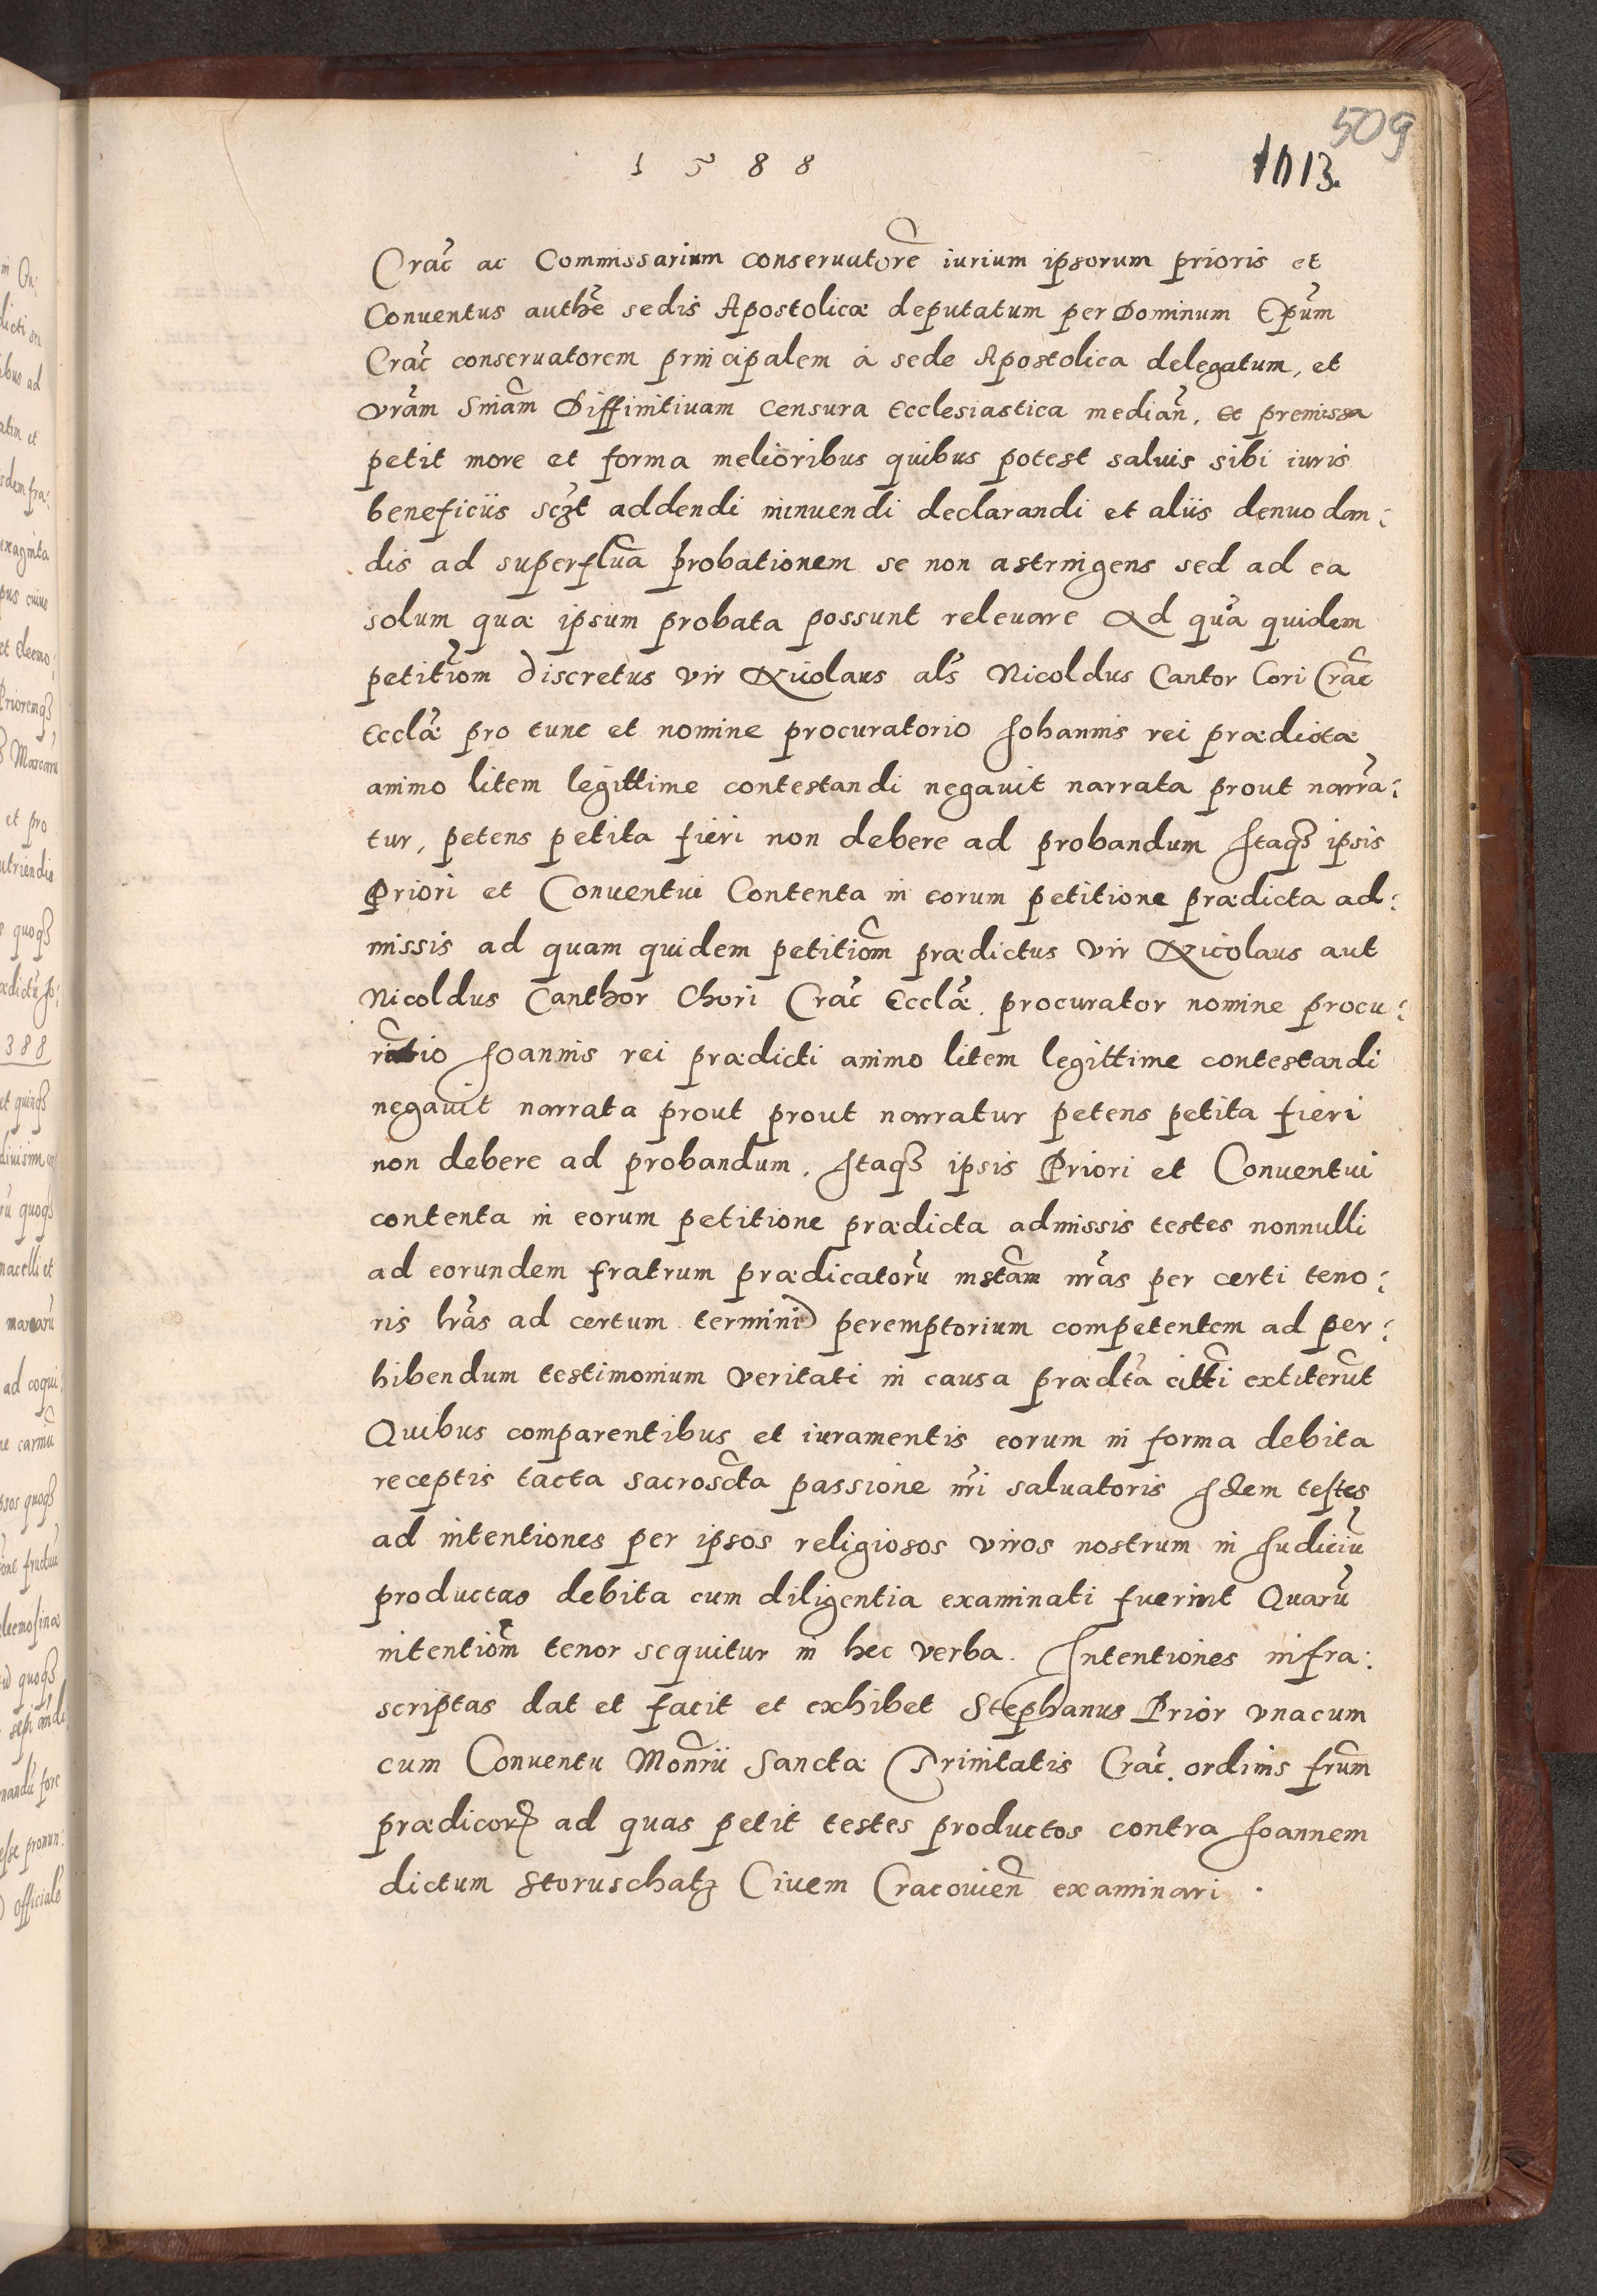 509
1 5 8 8
1013.
Crac̃ ac Commissarium conseruatorẽ iurium ipsorum prioris et
Conuentus authẽ sedis Apostolicæ deputatum per Dominum Ep̃um
Crac̃ conseruatorem principalem à sede Apostolica delegatum, et
vr̃am Sniãm Diffinitiuam censura Ecclesiastica median̄. Et premissa
petit more et forma melioribus quibus potest saluis sibi iuris
beneficiis sczt addendi minuendi declarandi et aliis denuo dan:
dis ad superfluã probationem se non astringens sed ad ea
solum quæ ipsum probata possunt releuare Ad quã quidem
petitiõm discretus vir Nicolaus als̃ Nicoldus Cantor Cori Crac̃
Ecclæ̃ pro tunc et nomine procuratorio Johannis rei prædictæ
animo litem legittime contestandi negauit narrata prout narra:
tur, petens petita fieri non debere ad probandum Itaqꝫ ipsis
Priori et Conuentui Contenta in eorum petitione prædicta ad:
missis ad quam quidem petitiõm prædictus vir Nicolaus aut
Nicoldus Canthor Chori Crac̃ Ecclæ̃. procurator nomine procu:
ratio Joannis rei prædicti animo litem legittime contestandi
negauit narrata prout prout narratur petens petita fieri
non debere ad probandum. Itaqꝫ ipsis Priori et Conuentui
contenta in eorum petitione prædicta admissis testes nonnulli
ad eorundem fratrum prædicatorũ instãm nr̃as per certi teno:
ris lr̃as ad certum termini peremptorium competentem ad per:
hibendum testimonium veritati in causa prædc̃ta cittĩ extiterũt
Quibus comparentibus et iuramentis eorum in forma debita
receptis tacta sacrosc̃ta passione nr̃i saluatoris Idem testes
ad intentiones per ipsos religiosos viros nostrum in Judiciũ
productas debita cum diligentia examinati fuerint Quarũ
intentiom̃ tenor sequitur in hec verba. Intentiones infra:
scriptas dat et facit et exhibet Stephanus Prior vnacum
cum Conuentu Monr̃ii Sanctæ Trinitatis Crac̃. ordinis frũm
prædicorꝫ ad quas petit testes productos contra Joannem
dictum Storuschatz Ciuem Cracouien̄ examinari .